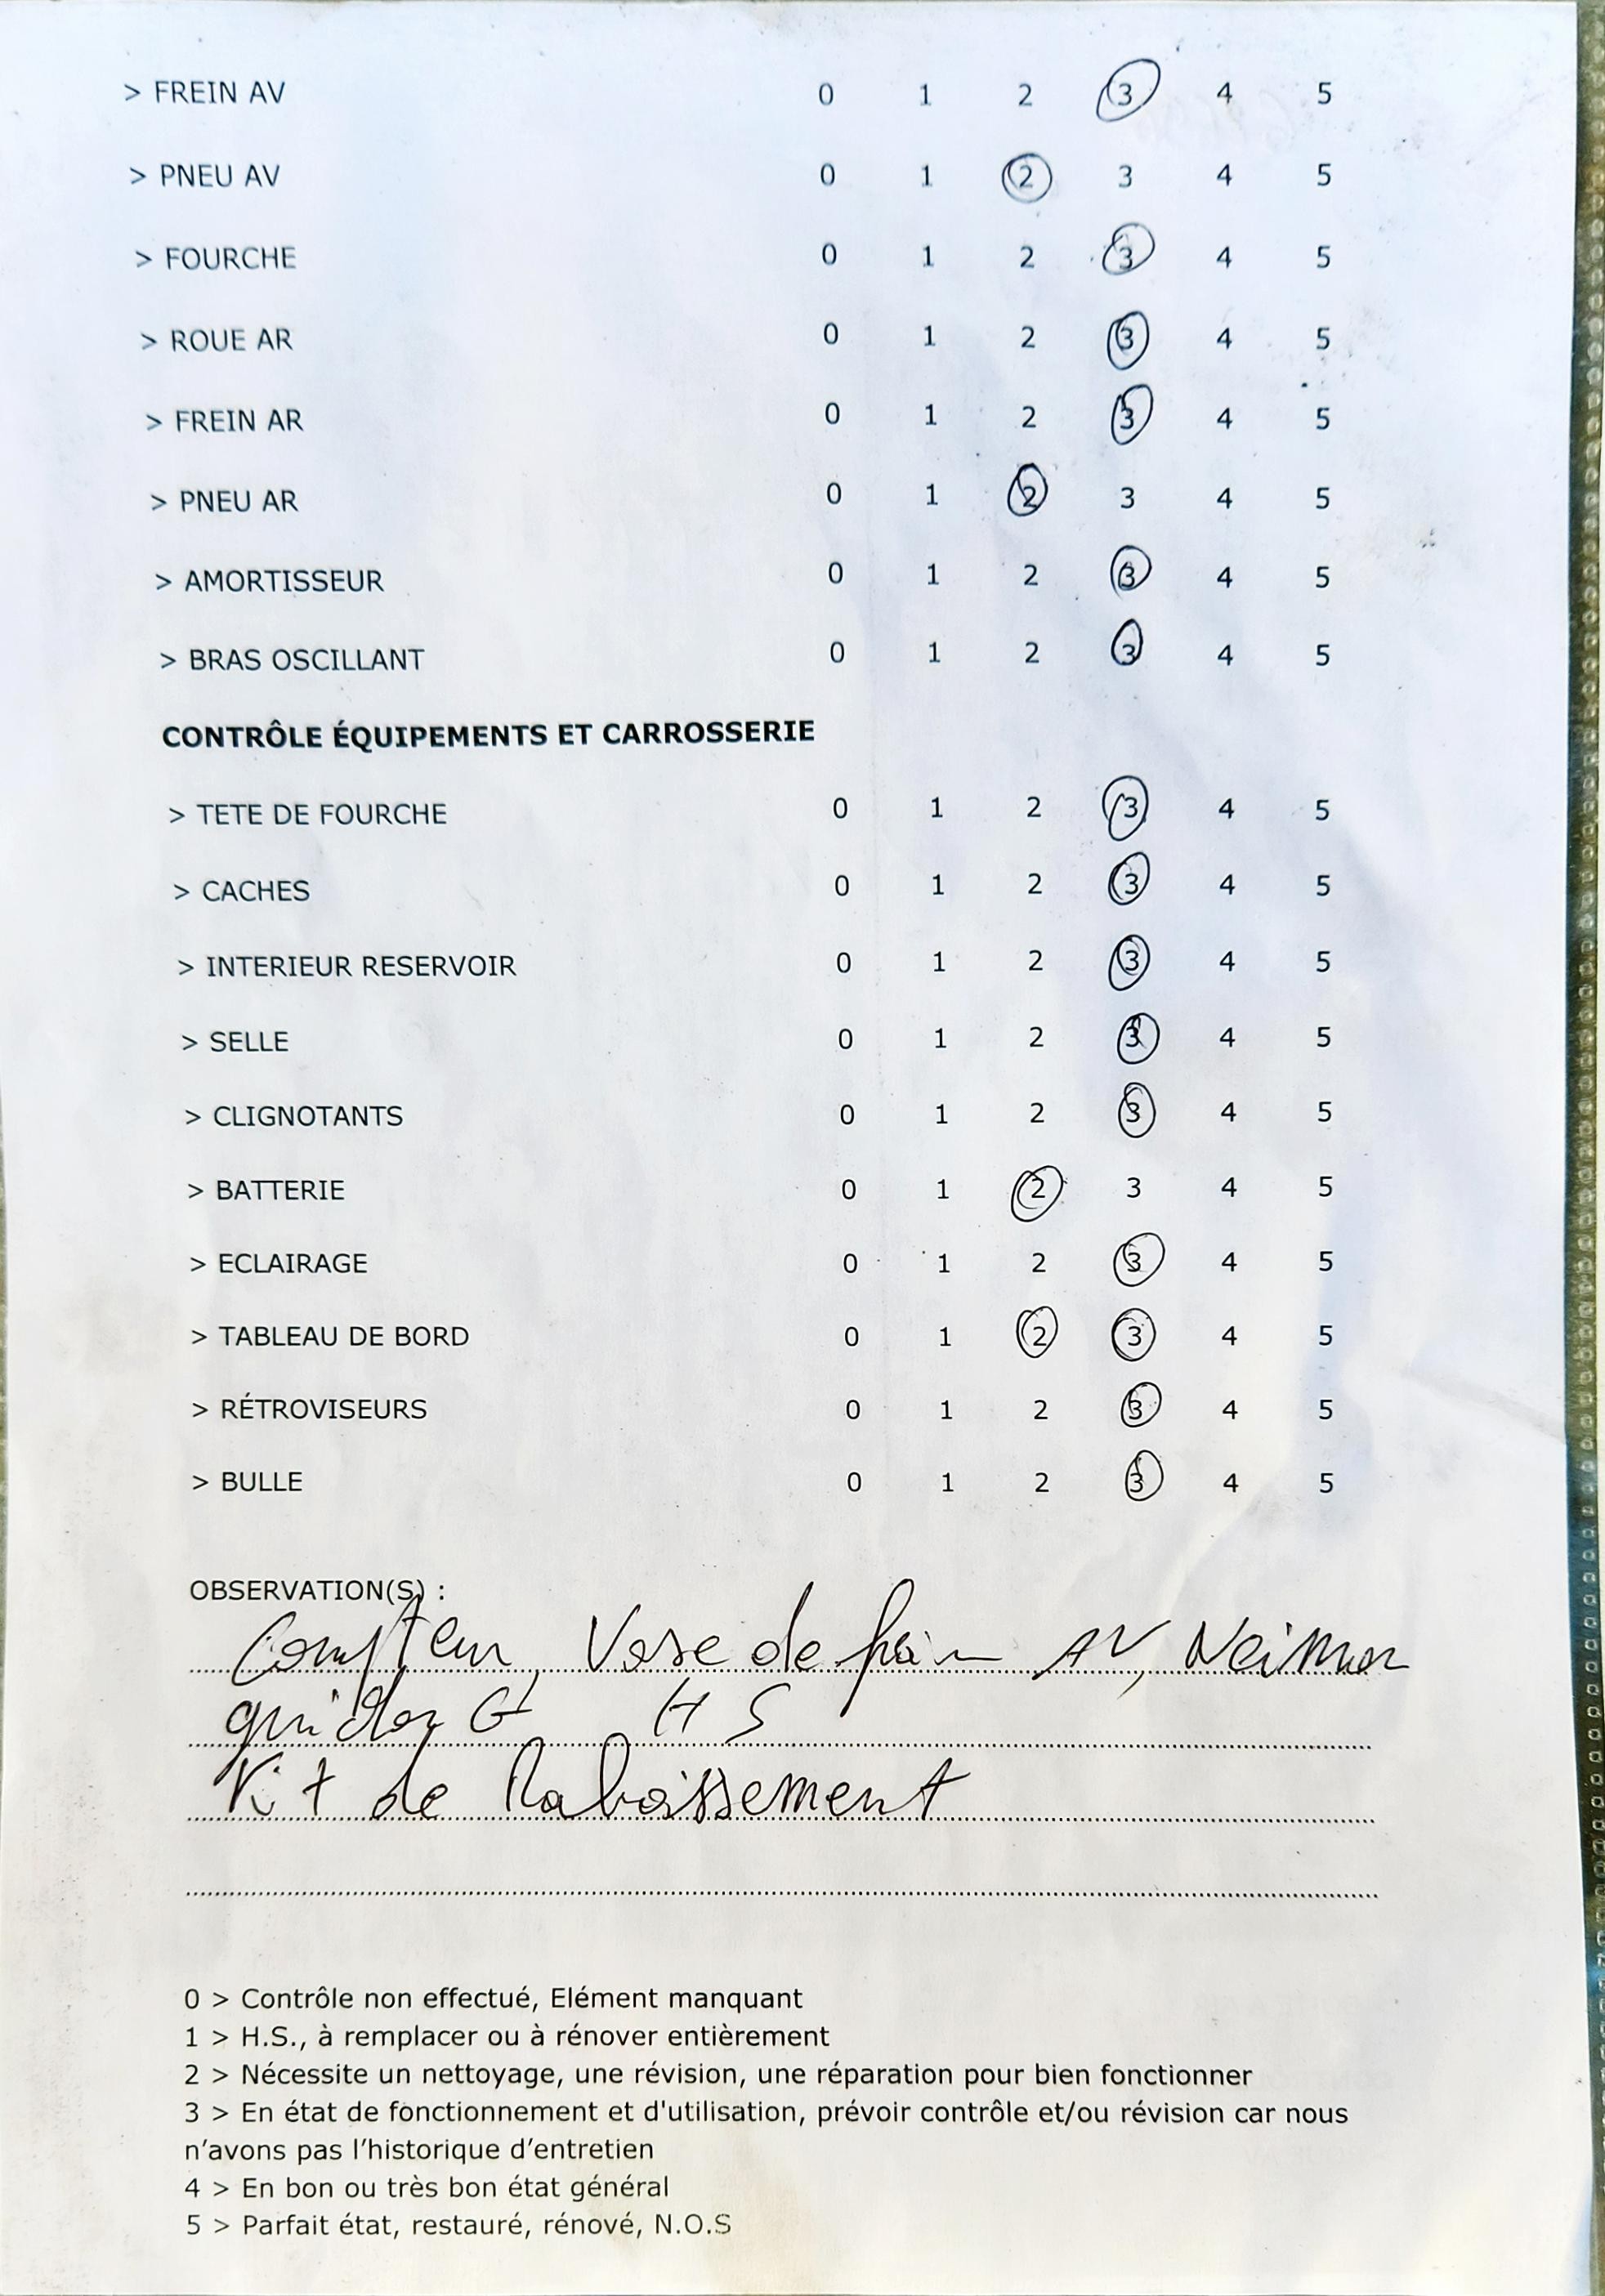 > FREIN AV 0 1 2 3 4 5
> PNEU AV 0 1 2 3 4 5
> FOURCHE 0 1 2 3 4 5
> ROUE AR 0 1 2 3 4 5
> FREIN AR 0 1 2 3 4 5
> PNEU AR 0 1 2 3 4 5
> AMORTISSEUR 0 1 2 3 4 5
> BRAS OSCILLANT 0 1 2 3 4 5
CONTRÔLE ÉQUIPEMENTS ET CARROSSERIE
> TETE DE FOURCHE 0 1 2 3 4 5
> CACHES 0 1 2 3 4 5
> INTERIEUR RESERVOIR 0 1 2 3 4 5
> SELLE 0 1 2 3 4 5
> CLIGNOTANTS 0 1 2 3 4 5
> BATTERIE 0 1 2 3 4 5
> ECLAIRAGE 0 1 2 3 4 5
> TABLEAU DE BORD 0 1 2 3 4 5
> RÉTROVISEURS 0 1 2 3 4 5
> BULLE 0 1 2 3 4 5
OBSERVATION(S) :
Compteur, Vase de frein AV, Neiman
guidon G HS
Kit de Rabaissement
0 > Contrôle non effectué, Elément manquant
1 > H.S., à remplacer ou à rénover entièrement
2 > Nécessite un nettoyage, une révision, une réparation pour bien fonctionner
3 > En état de fonctionnement et d'utilisation, prévoir contrôle et/ou révision car nous
n’avons pas l’historique d’entretien
4 > En bon ou très bon état général
5 > Parfait état, restauré, rénové, N.O.S